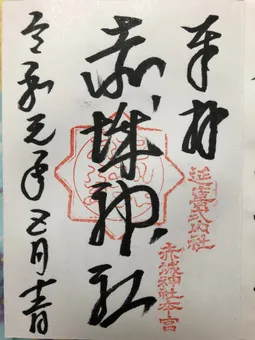 奉拝
延喜式内社
赤城神社本宮
赤城神社
令和元年五月